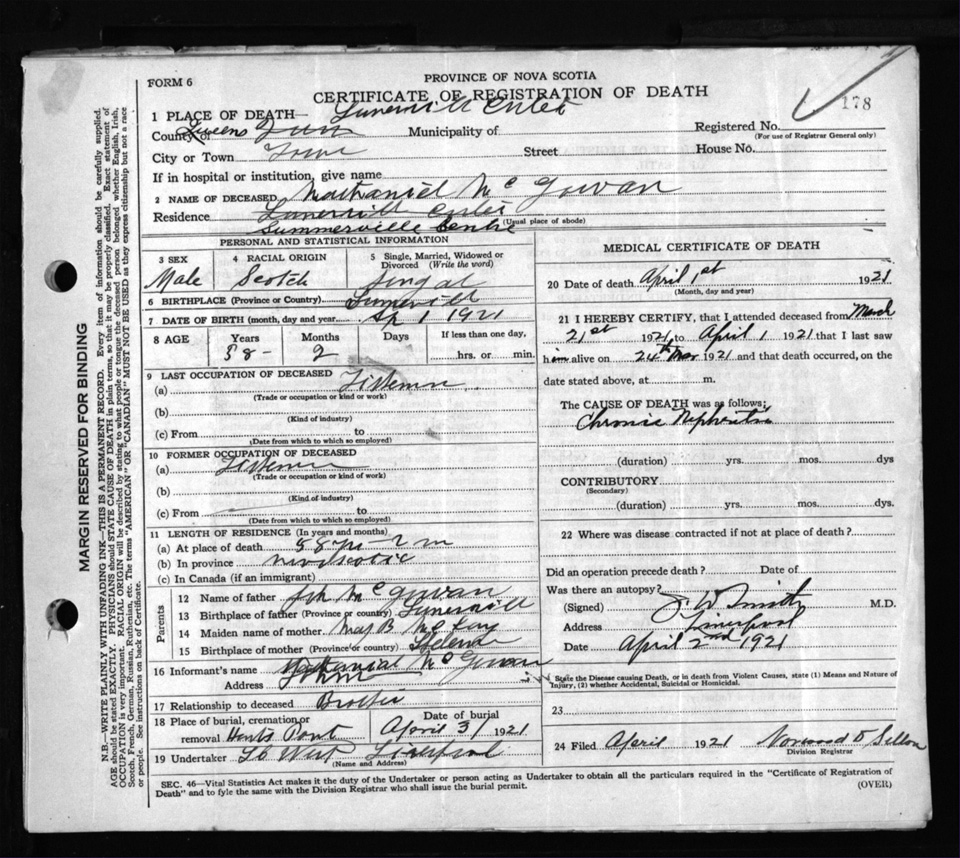 FORM 6
PROVINCE OF NOVA SCOTIA
CERTIFICATE OF REGISTRATION OF DEATH
178
1 PLACE OF DEATH—
County of Queens
Municipality of
Registered No.
(For use of Registrar General only)
City or Town
Street
House No.
If in hospital or institution, give name
2 NAME OF DECEASED Nathaniel Mc Gowan
Residence
(Usual place of abode)
Summerville Centre
PERSONAL AND STATISTICAL INFORMATION
3 SEX
Male
4 RACIAL ORIGIN
Scotch
5 Single, Married, Widowed or Divorced (Write the word)
Singal
6 BIRTHPLACE (Province or Country)
7 DATE OF BIRTH (month, day and year) Ap 1 1921
8 AGE
Years
58
Months
2
Days
If less than one day,
hrs. or min.
9 LAST OCCUPATION OF DECEASED
(a)
(Trade or occupation or kind or work)
(b)
(Kind of industry)
(c) From to
(Date from which to which so employed)
10 FORMER OCCUPATION OF DECEASED
(a)
(Trade or occupation or kind of work)
(b)
(Kind of industry)
(c) From to
(Date from which to which so employed)
11 LENGTH OF RESIDENCE (In years and months)
(a) At place of death 58 yr 2 m
(b) In province novascotia
(c) In Canada (if an immigrant)
Parents
12 Name of father Mc Gowan
13 Birthplace of father (Province or country)
14 Maiden name of mother B McKay
15 Birthplace of mother (Province or country)
16 Informant's name Mc Gowan
John
Address
17 Relationship to deceased Brother
18 Place of burial, cremation or removal Hunts Point
Date of burial
April 3 1921
19 Undertaker West Liverpool
(Name and Address)
MEDICAL CERTIFICATE OF DEATH
20 Date of death April 1st 1921
(Month, day and year)
21 I HEREBY CERTIFY, that I attended deceased from March
21st 1921, to April 1 1921 that I last saw
him alive on 24th Mar 1921 and that death occurred, on the
date stated above, at m.
The CAUSE OF DEATH was as follows:
Chronic Nephritis
(duration) yrs. mos. dys
CONTRIBUTORY
(Secondary)
(duration) yrs. mos. dys.
22 Where was disease contracted if not at place of death?
Did an operation precede death? Date of
Was there an autopsy?
(Signed) J W Smith M.D.
Address Liverpool
Date April 2nd 1921
State the Disease causing Death, or in death from Violent Causes, state (1) Means and Nature of Injury, (2) whether Accidental, Suicidal or Homicidal.
23
24 Filed April 1921
Division Registrar
SEC. 46—Vital Statistics Act makes it the duty of the Undertaker or person acting as Undertaker to obtain all the particulars required in the "Certificate of Registration of
Death" and to fyle the same with the Division Registrar who shall issue the burial permit.
(OVER)
MARGIN RESERVED FOR BINDING
N.B.—WRITE PLAINLY WITH UNFADING INK—THIS IS A PERMANENT RECORD. Every item of information should be carefully supplied.
AGE should be stated EXACTLY. PHYSICIANS should STATE CAUSE OF DEATH in plain terms, so that it may be properly classified. Exact statement of
OCCUPATION is very important. RACIAL ORIGIN will be described by stating to what people or tongue the deceased person belonged whether English, Irish,
Scotch, French, German, Russian, Ruthenian, etc. The terms "AMERICAN" OR "CANADIAN" MUST NOT BE USED as they express citizenship but not a race
or people. See instructions on back of Certificate.